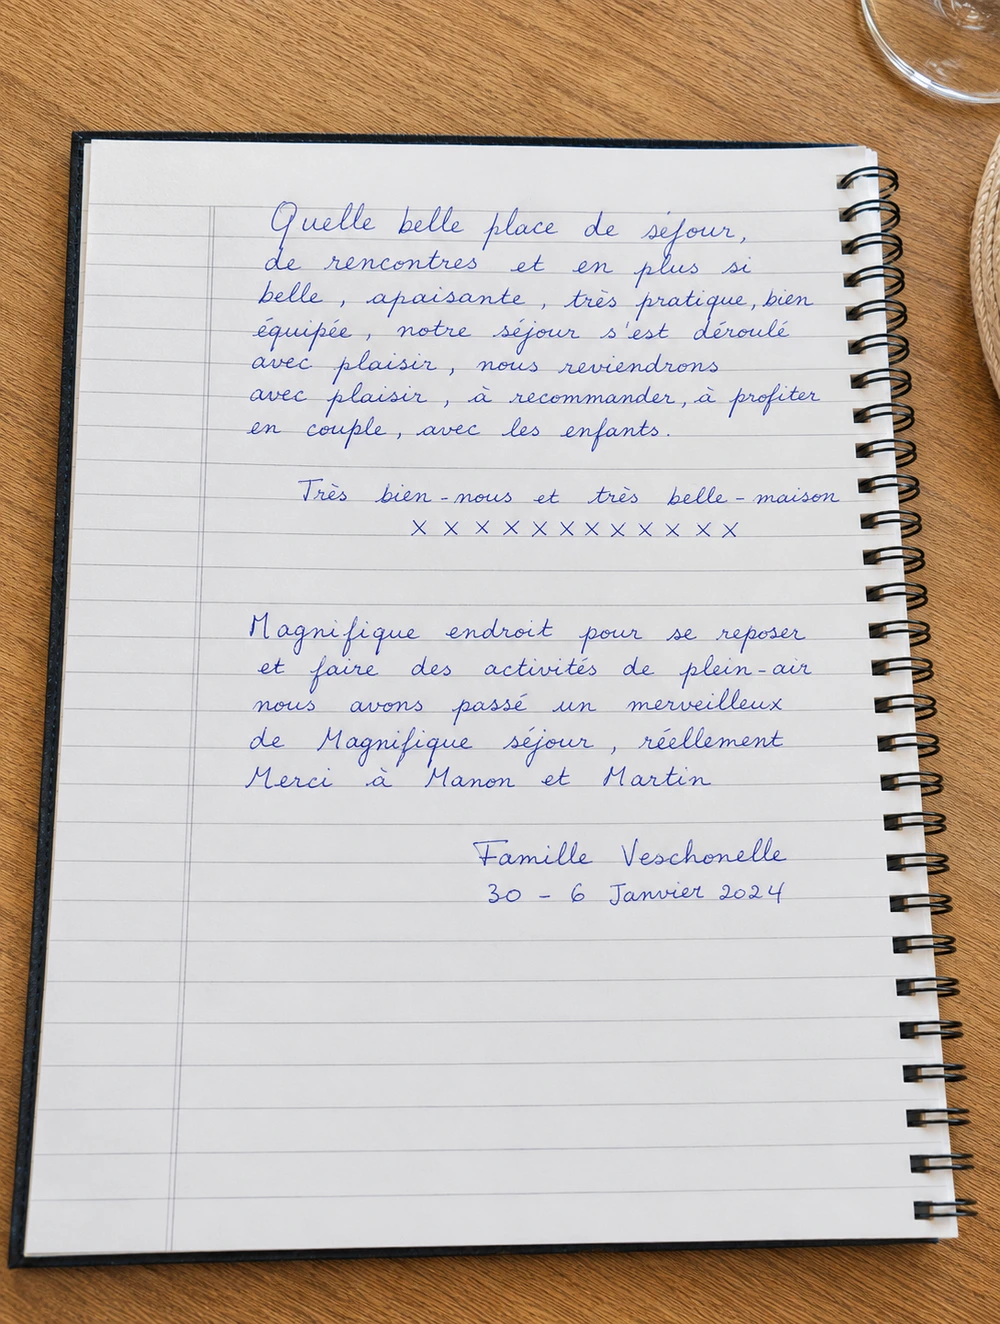 Quelle belle place de séjour,
de rencontres et en plus si
belle, apaisante, très pratique, bien
équipée, notre séjour s'est déroulé
avec plaisir, nous reviendrons
avec plaisir, à recommander, à profiter
en couple, avec les enfants.
Très bien-nous et très belle-maison
x x x x x x x x x x x x
Magnifique endroit pour se reposer
et faire des activités de plein-air
nous avons passé un merveilleux
de Magnifique séjour, réellement
Merci à Manon et Martin
Famille Veschonelle
30 - 6 Janvier 2024